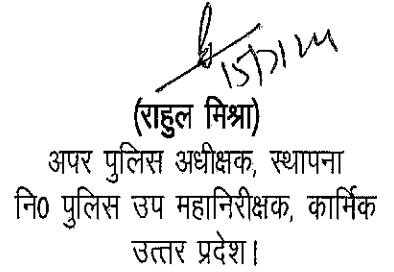 15/7/24
(राहुल मिश्रा)
अपर पुलिस अधीक्षक, स्थापना
नि0 पुलिस उप महानिरीक्षक, कार्मिक
उत्तर प्रदेश।